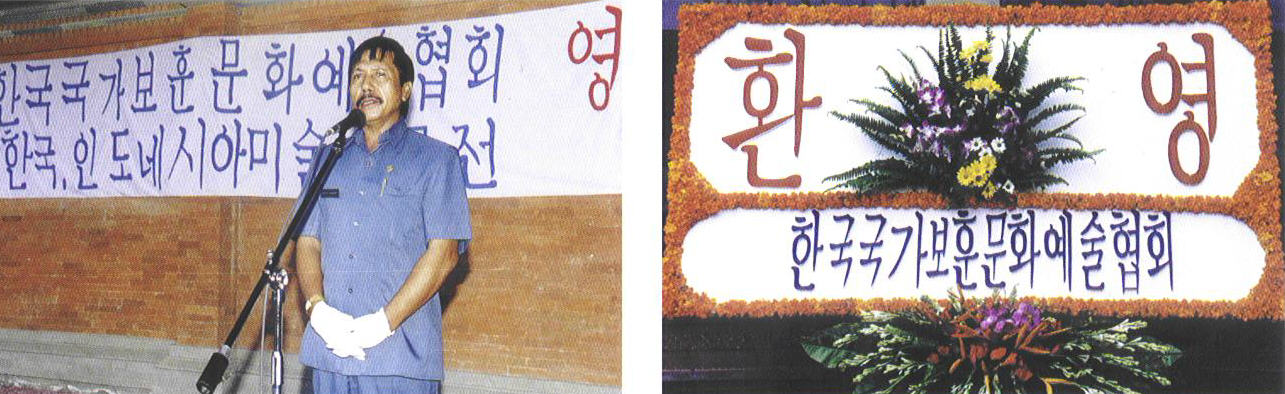 한국국가보훈문화예 협회 영
한국,인도네시아미술 전
환 영
한국국가보훈문화예술협회